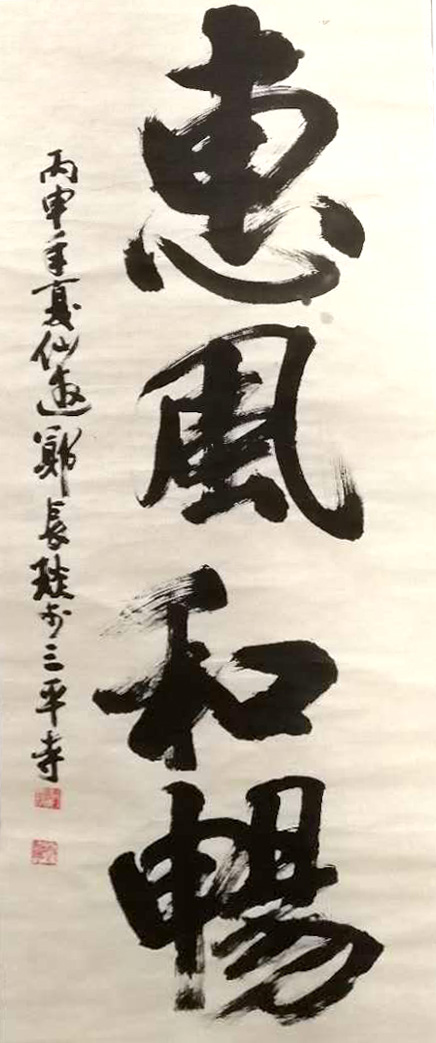 惠風和暢
丙申年夏仙遊鄭長琰於三平寺